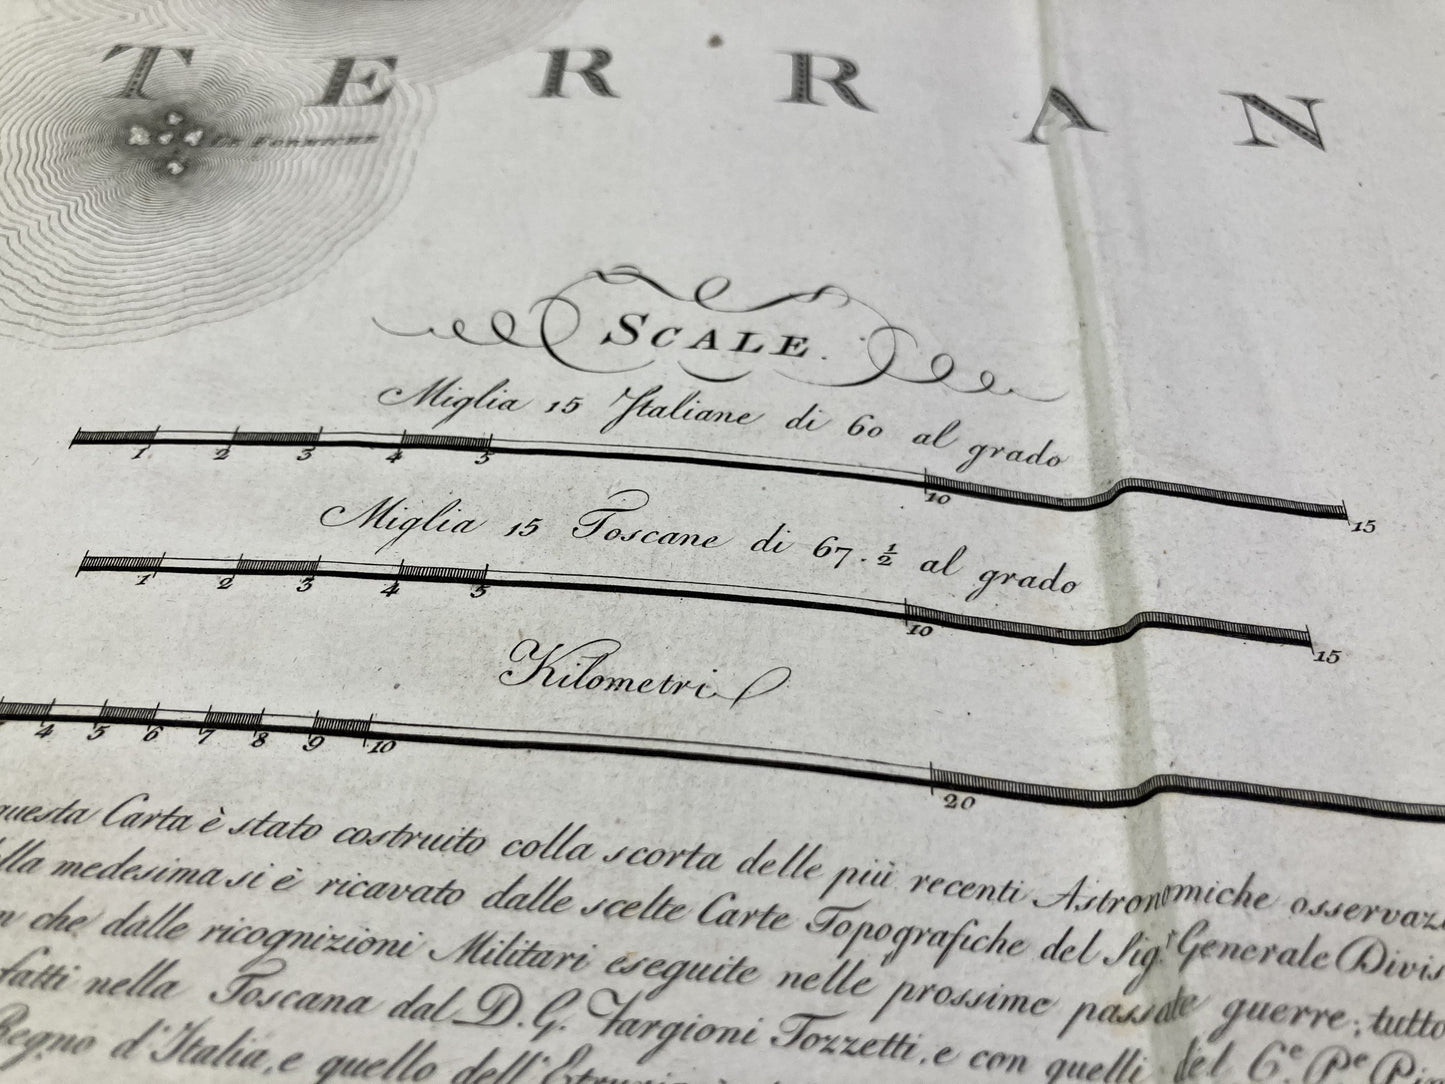 TERRAN
Le Formiche
SCALE.
Miglia 15 Italiane di 60 al grado
1 2 3 4 5 10 15
Miglia 15 Toscane di 67.½ al grado
1 2 3 4 5 10 15
Kilometri
4 5 6 7 8 9 10 20
questa Carta è stato costruito colla scorta delle più recenti Astronomiche osservaz
della medesima si è ricavato dalle scelte Carte Topografiche del Sigr. Generale Divis
che dalle ricognizioni Militari eseguite nelle prossime passate guerre; tutto
fatti nella Toscana dal D. G. Targioni Tozzetti, e con quelli del C.e P.e
Regno d'Italia, e quello dell'